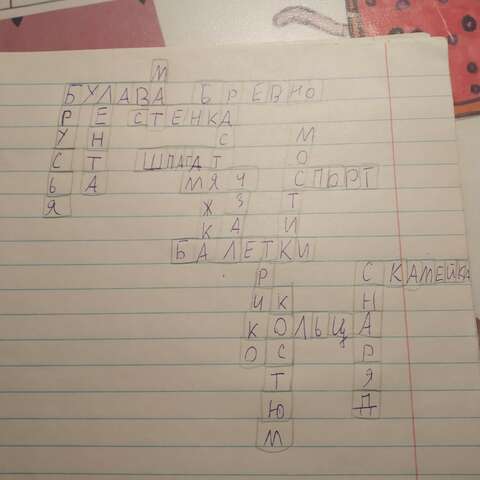 М
БУЛАВА БРЕВНО
Р Е СТЕНКА
У Н С М
С Т ШПАГАТ О
Ь А МЯЧ СПОРТ
Я Ж З Т
К А И
БАЛЕТКИ
Р СКАМЕЙКА
И К Н
КОЛЬЦА
О С Р
Т Э
Ю Д
М